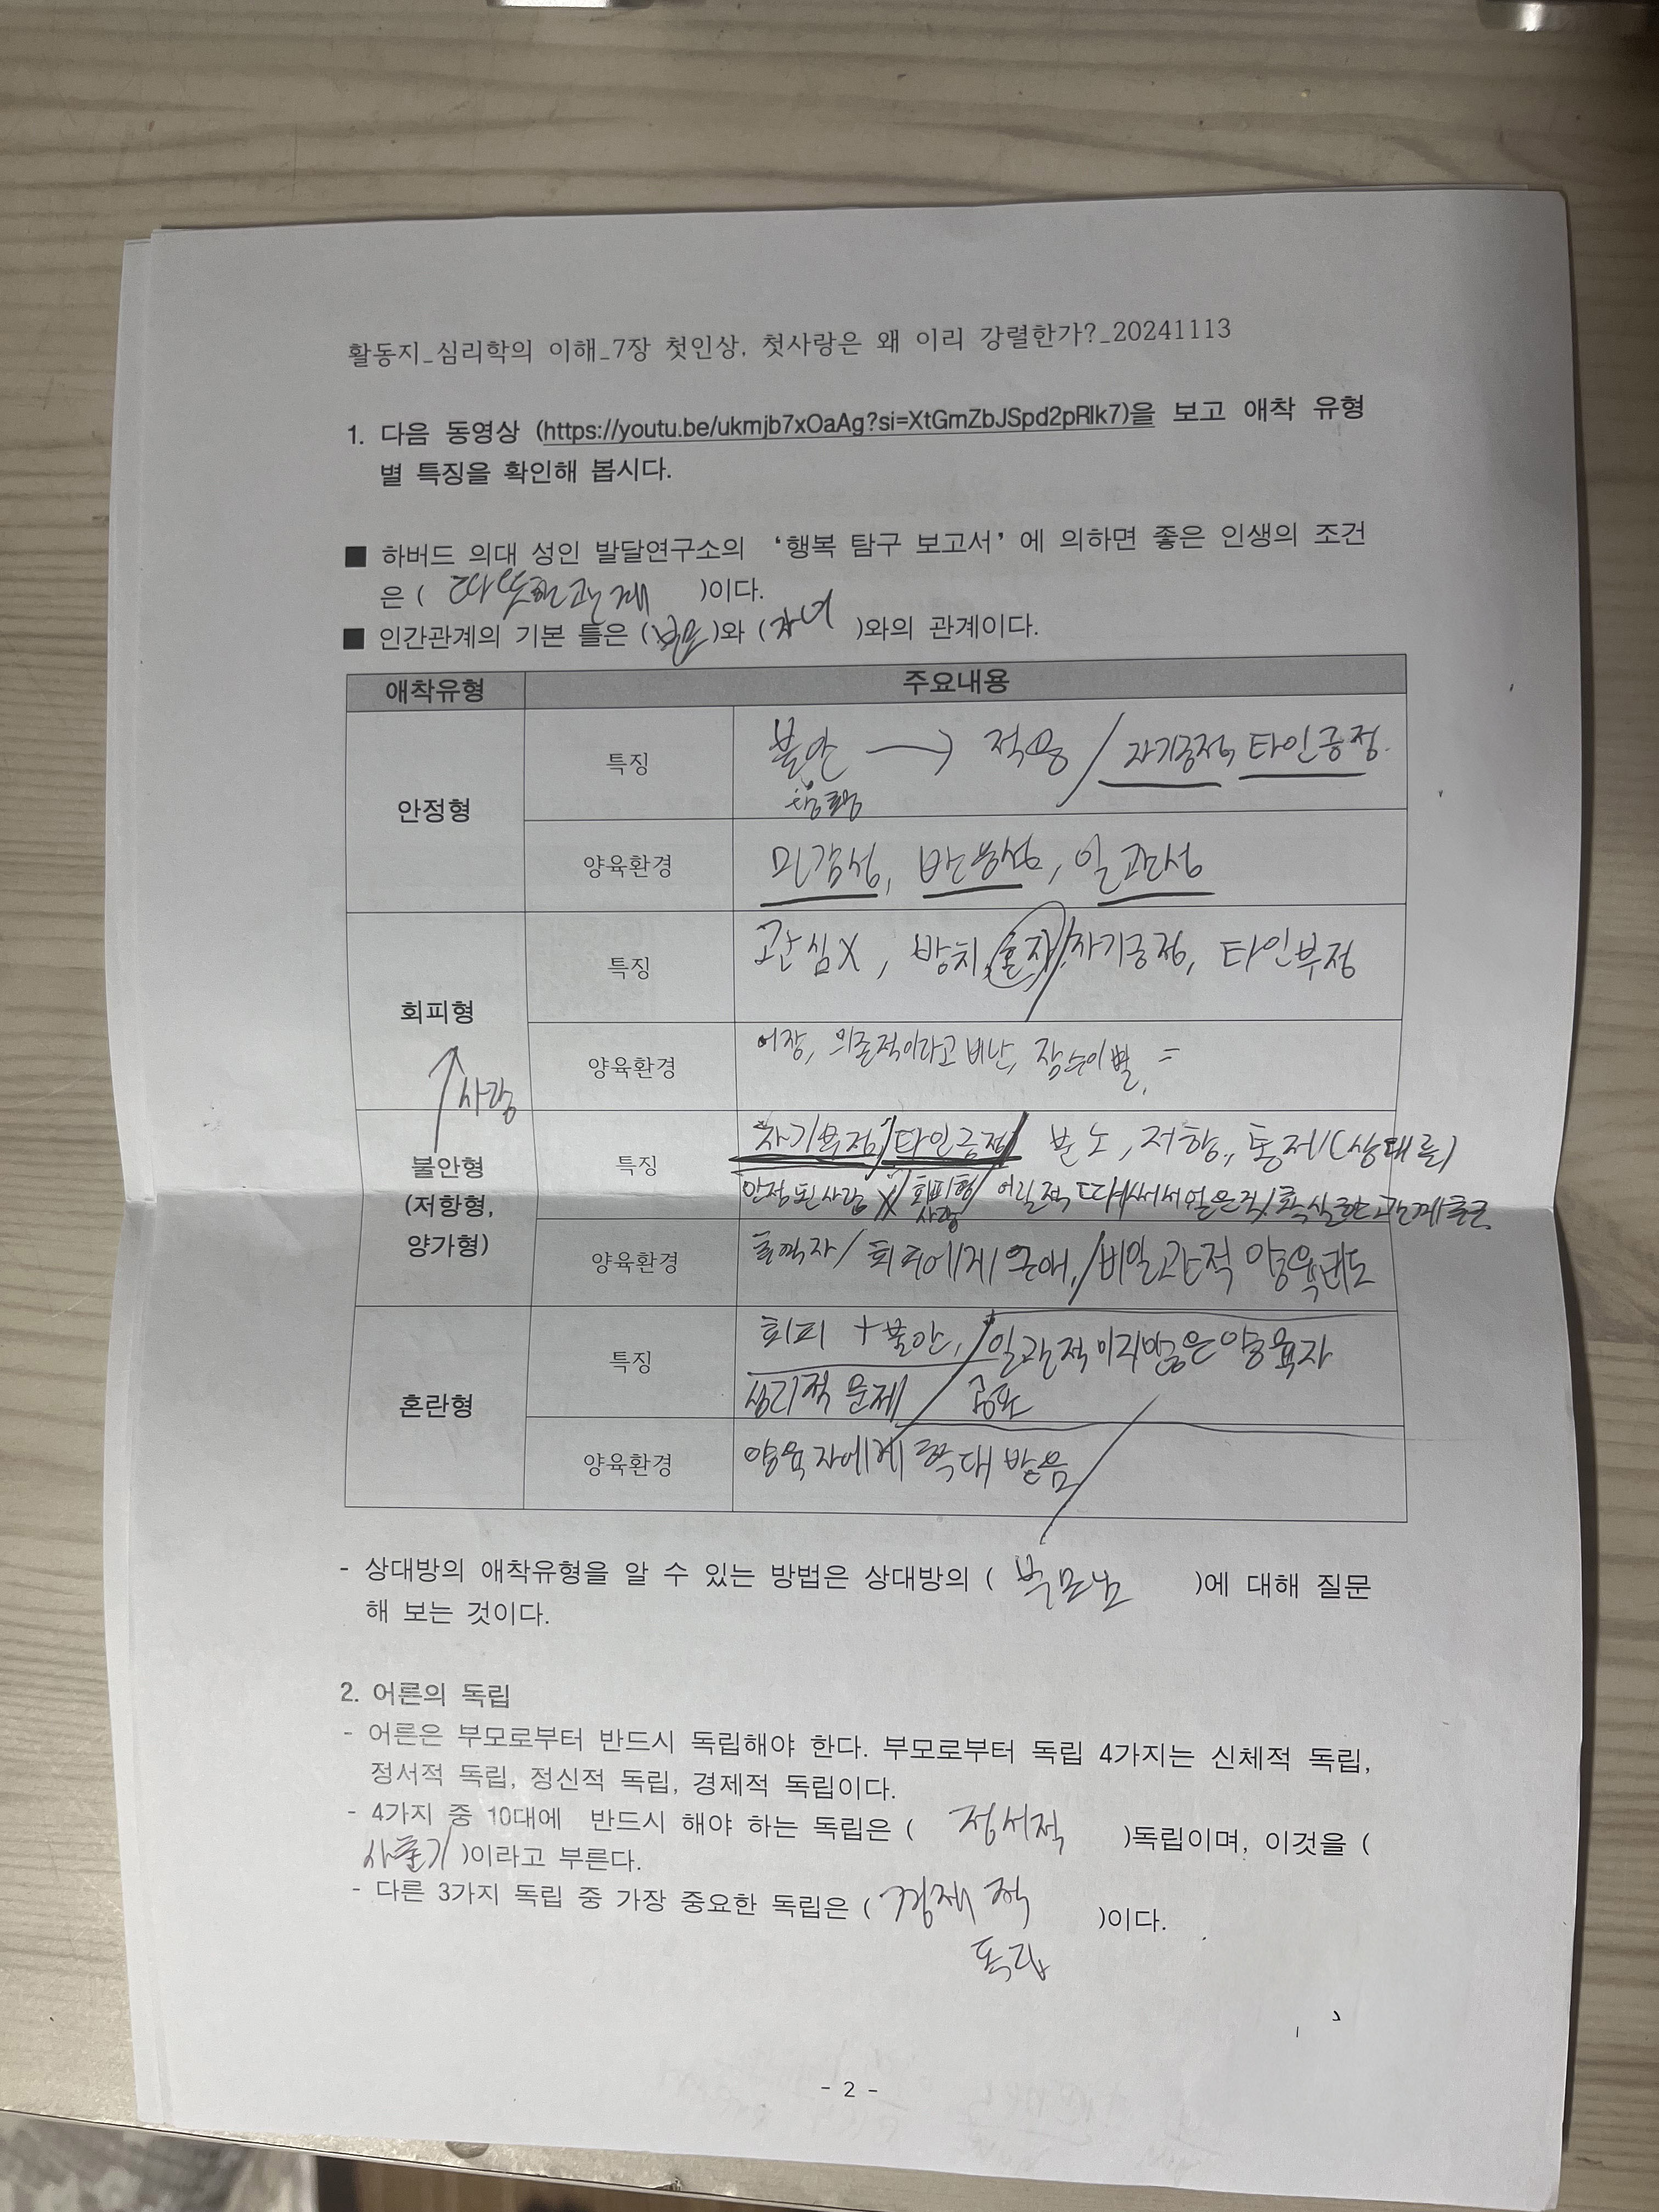 활동지_심리학의 이해_7장 첫인상, 첫사랑은 왜 이리 강렬한가?_20241113
1. 다음 동영상 (https://youtu.be/ukmjb7xOaAg?si=XtGmZbJSpd2pRlk7)을 보고 애착 유형
별 특징을 확인해 봅시다.
■ 하버드 의대 성인 발달연구소의 '행복 탐구 보고서'에 의하면 좋은 인생의 조건
은 ( 따뜻한 관계 )이다.
■ 인간관계의 기본 틀은 (부모)와 (자녀 )와의 관계이다.
애착유형 주요내용
안정형
특징 불안 → 적응 / 자기긍정, 타인긍정.
양육환경 민감성, 반응성, 일관성
회피형
특징 관심X, 방치, 혼자 / 자기긍정, 타인부정
양육환경 의존적이라고 비난, 잠수이별, =
↑ 사랑
불안형
(저항형,
양가형)
특징 자기부정/타인긍정/ 분노, 저항, 통제(상대를)
안정된 사람 X / 회피형 사랑 / 어릴적
양육환경 / 회피에게 / 비일관적 양육태도
혼란형
특징 회피 + 불안, / 일관적이지않은 양육자
심리적 문제 / 공포
양육환경 양육자에게 학대 받음 /
- 상대방의 애착유형을 알 수 있는 방법은 상대방의 ( 부모님 )에 대해 질문
해 보는 것이다.
2. 어른의 독립
- 어른은 부모로부터 반드시 독립해야 한다. 부모로부터 독립 4가지는 신체적 독립,
정서적 독립, 정신적 독립, 경제적 독립이다.
- 4가지 중 10대에 반드시 해야 하는 독립은 ( 정서적 )독립이며, 이것을 (
사춘기 )이라고 부른다.
- 다른 3가지 독립 중 가장 중요한 독립은 ( 경제적 )이다.
독립
- 2 -